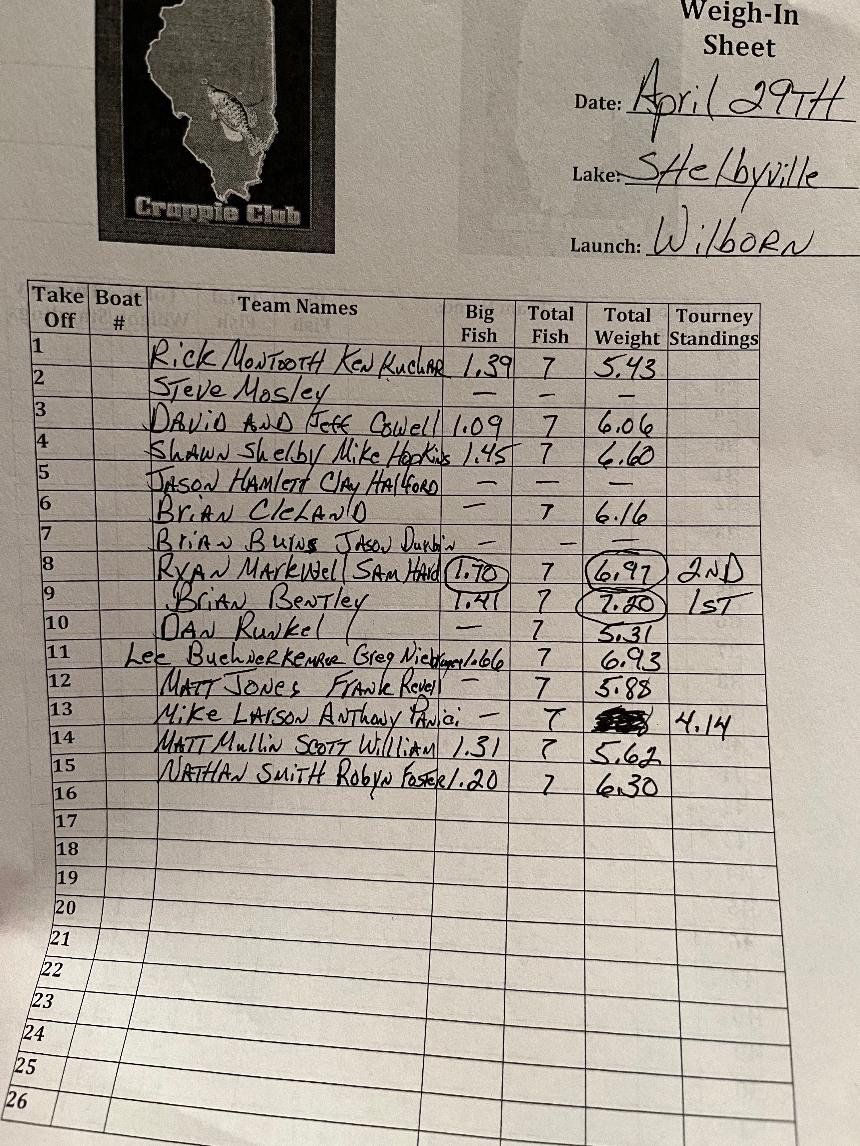 Weigh-In
Sheet
Date: April 29TH
Lake: SHelbyville
Launch: WilBORN
Crappie Club
Take Off Boat # Team Names Big Fish Total Fish Total Weight Tourney Standings
1 Rick MONTOOTH KEN KUCHAR 1.39 7 5.43
2 STEVE MOSLEY — — —
3 DAVID AND Jeff COWELL 1.09 7 6.06
4 SHAWN SHelby Mike Hopkins 1.45 7 6.60
5 JASON HAMLETT Clay HALFORD — — —
6 BRIAN CleLAND — 7 6.16
7 BRIAN BURNS JASON — — —
8 RYAN MARKWell SAM HARD 1.70 7 6.97 2ND
9 BRIAN BENTLEY 1.41 7 7.20 1ST
10 DAN RUNKEL — 7 5.31
11 Lee Greg 1.66 7 6.93
12 MATT JONES FRANK Revell — 7 5.88
13 Mike LARSON ANTHONY — 7 4.14
14 MATT Mullin SCOTT WILLIAM 1.31 7 5.62
15 NATHAN SMITH Robyn Foster 1.20 7 6.30
16
17
18
19
20
21
22
23
24
25
26